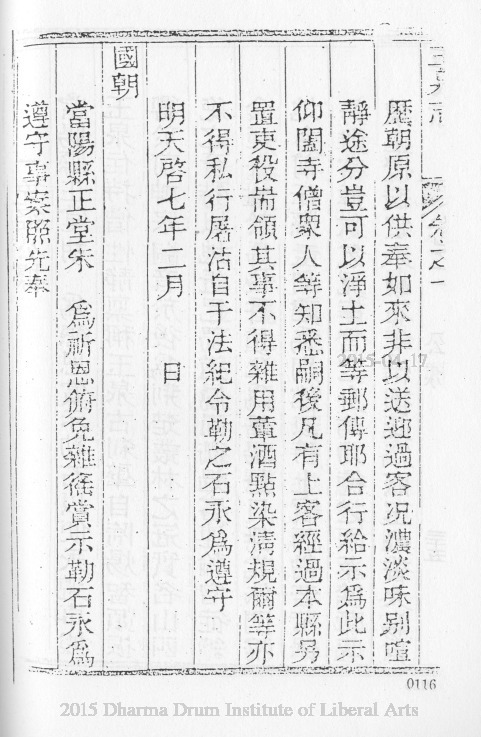 歷朝原以供奉如來非以送迎過客况濃淡味别喧
靜途分豈可以淨土而等郵傳耶合行給示爲此示
仰闔寺僧衆人等知悉嗣後凡有上客經過本縣另
置吏役備領其事不得雜用葷酒點染清規爾等亦
不得私行屠沽自干法紀令勒之石永爲遵守
明天啓七年二月 日
國朝
當陽縣正堂朱 爲祈恩俯免雜徭賞示勒石永爲
遵守事案照先奉
2015-04-17
0116
2015 Dharma Drum Institute of Liberal Arts